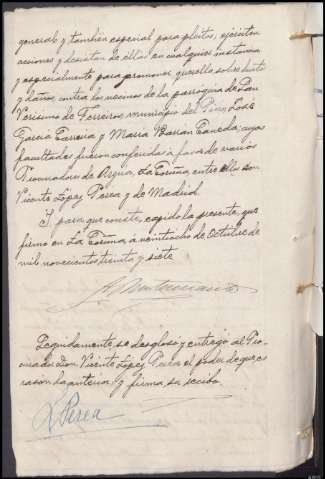 general y también especial para pleitos, ejerciten
acciones y desistan de ellas en cualquier instancia
y especialmente para promover querella sobre hurto
y daños, contra los vecinos de la parroquia de San
Verisimo de Ferreiros, municipio del Pino, José
García Ferreiro y Maria Taneda; cuyas
facultades fueron conferidas a favor de varios
Procuradores de Arzua, La Coruña entre ellos Don
Vicente López Perea y de Madrid.
Y para que conste, expido la presente, que
firmo en La Coruña, a veintiocho de Octubre de
mil novecientos treinta y siete
Seguidamente se desglosó y entregó al Pro-
curador Don Vicente López Perea el poder de que es
razon la anterior y firma su recibo.
L. Perea